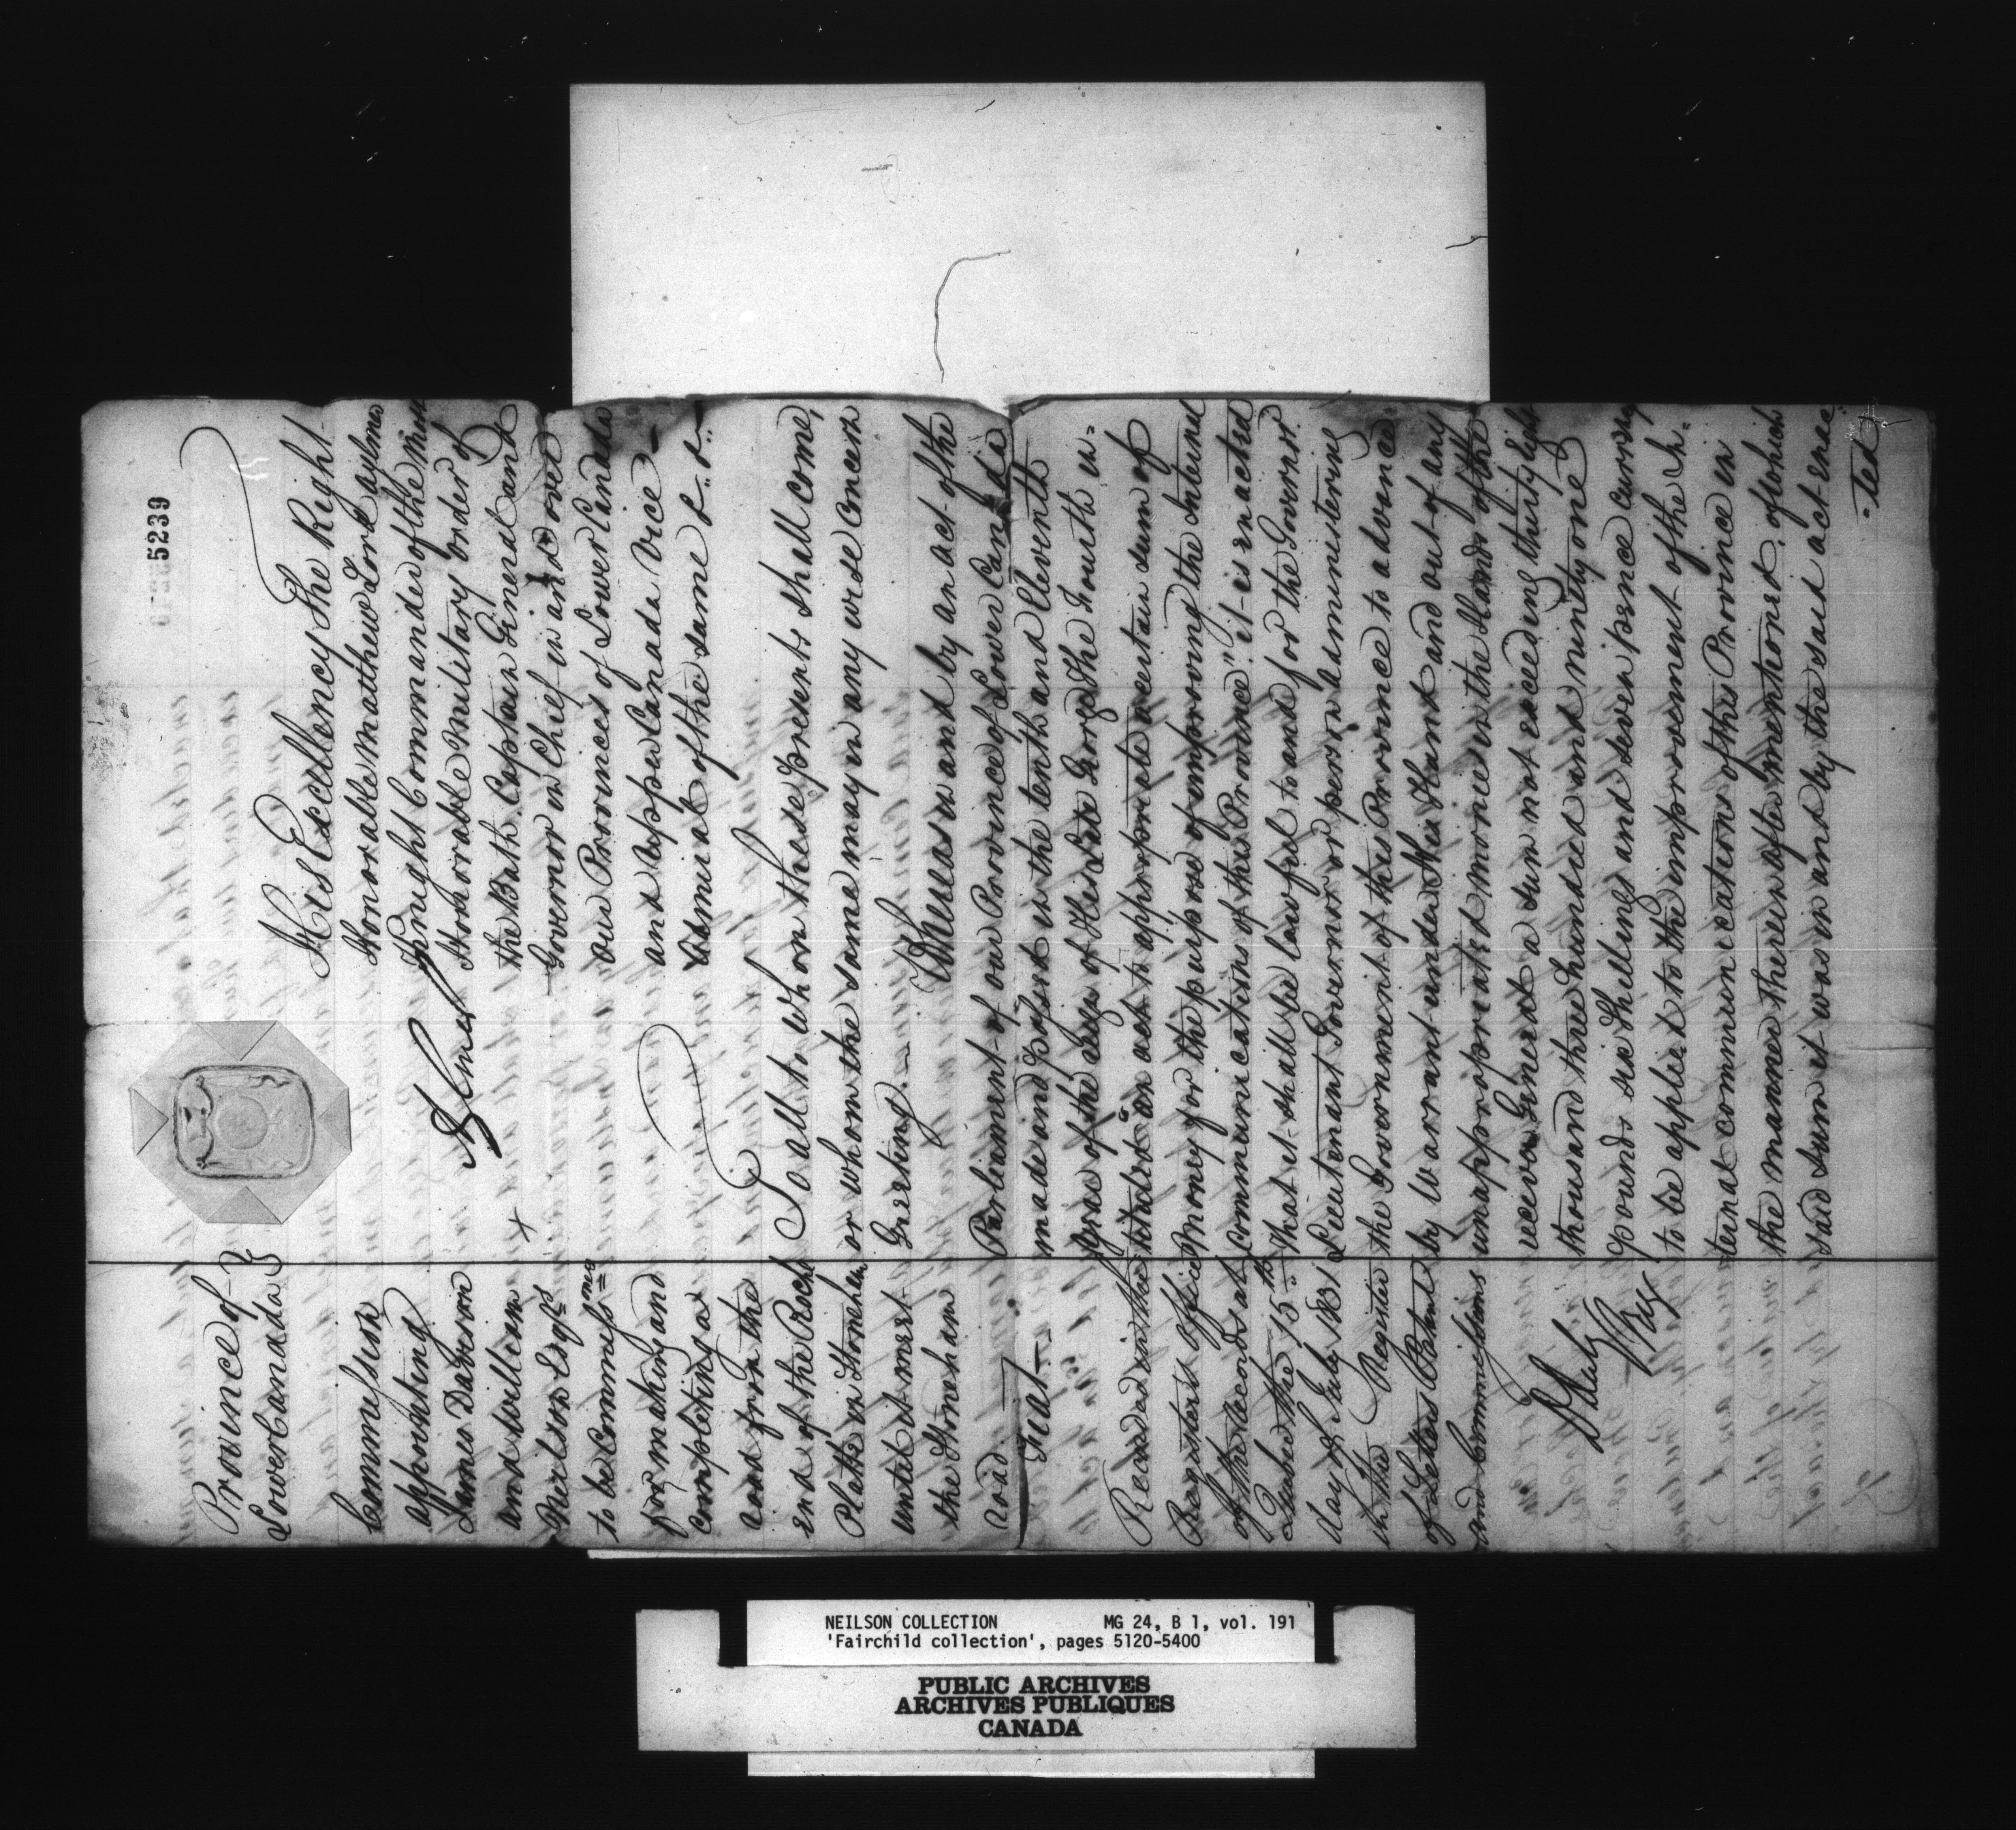 5239
Province of
Lower Canada
Aylmer
His Excellency The Right
Honorable Matthew Lord Aylmer
Knight Commander of the Most
Honorable Military Order of
the Bath, Captain General and
Governor in Chief in and over
our Provinces of Lower Canada
and Upper Canada Vice
Admiral of the same &c &c
To all to Whom these presents shall come,
or whom the same may in any wise Concern
Greeting.
Whereas in and by an act of the
Parliament of our Province of Lower Canada
made and passed in the tenth and Eleventh
year of the reign of His Late George The Fourth in=
tituled "an act to appropriate a certain sum of
Money for the purpose of improving the Internal
Communications of this Province" it is enacted
That it shall be lawful to and for the Governor
Lieutenant Governor or person administering
the Government of this Province to advance
by Warrant under His Hand and out of any
unappropriated monies in the Hands of the
receiver General a sum not exceeding thirty eight
thousand three hundred and ninty one
pounds six Shillings and seven pence currency
to be applied to the improvement of the In=
ternal communications of this Province in
the manner therein after mentioned, of which
said sum it was in and by the said act enac=
=ted
Commission
appointing
James Davison
and William
Neilson Esqrs
to be Commissrs
for making and
completing a
road from the
end of the Rocky
Platte in Stoneham
until it meets
the Stoneham
road.
Fiat
Recorded in the
Registers Office
of the Records at
Quebec the 15th
day of July 1831
in the Register
of Letters Patent
and Commissions
D Daly
Reg
NEILSON COLLECTION MG 24, B 1, vol. 191
'Fairchild collection', pages 5120-5400
PUBLIC ARCHIVES
ARCHIVES PUBLIQUES
CANADA